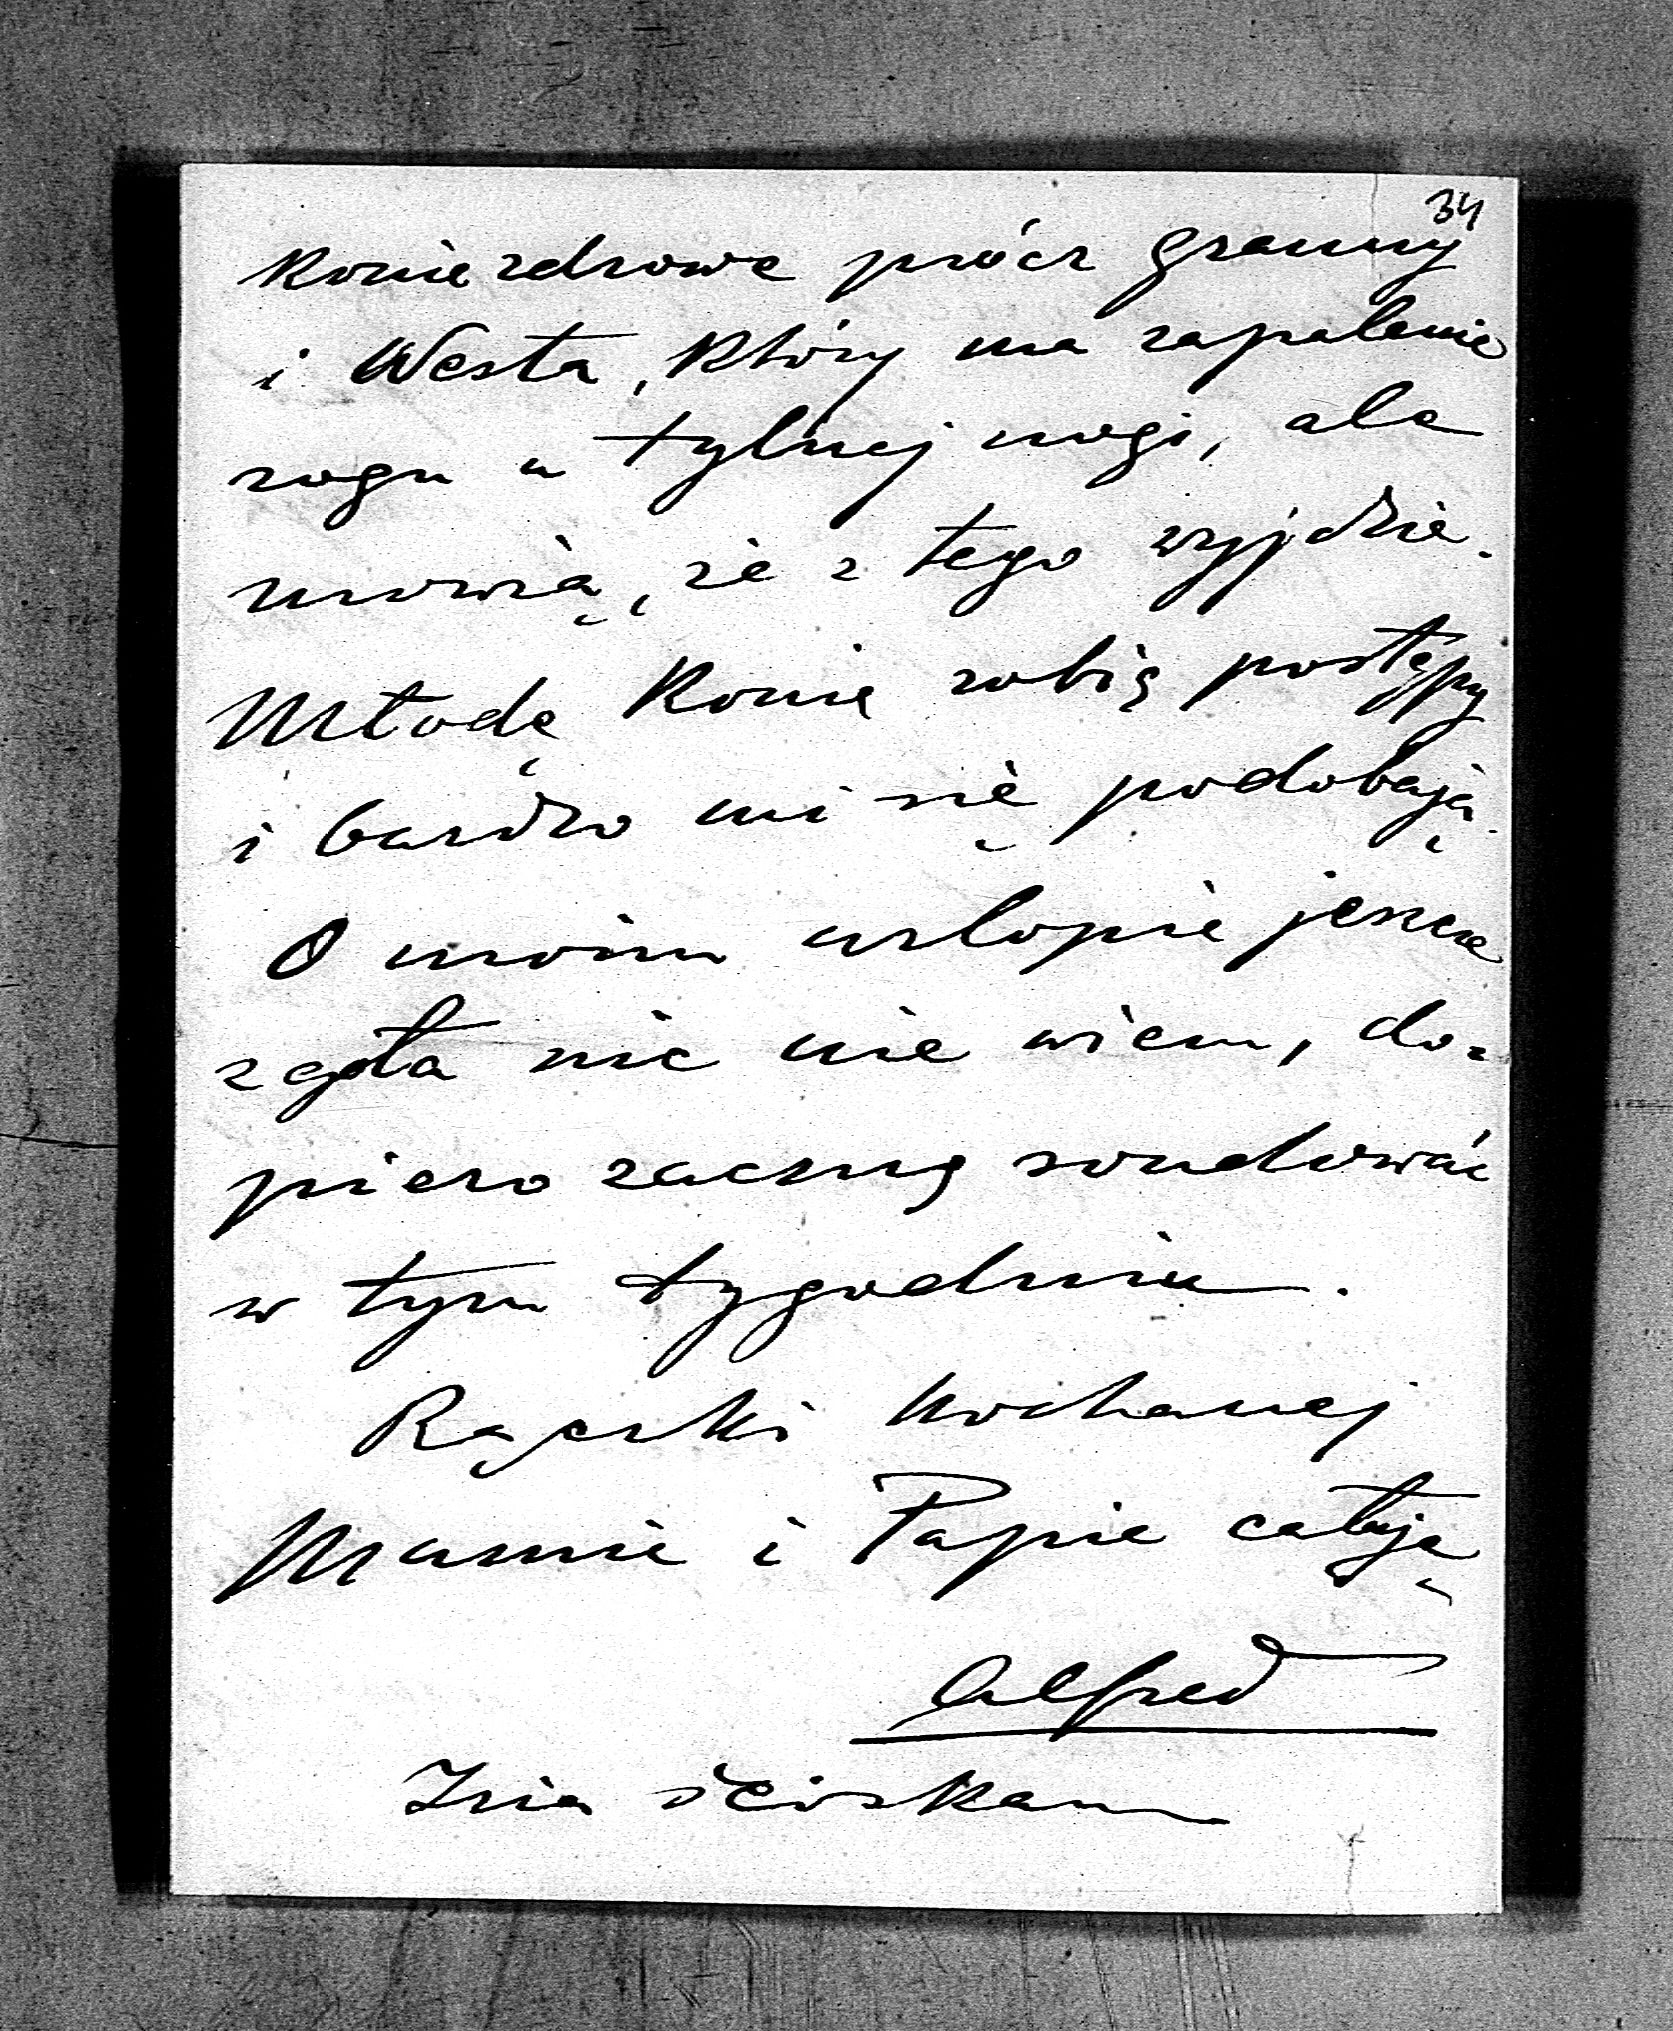 34
Konie zdrowe prócz Granny
i Westa, który ma zapalenie
rogu u tylnej nogi, ale
mowią, że z tego wyjdzie.
Młodę Konie robią postępy
i bardzo mi się podobają.
O moim urlopie jeszcze
zgoła nic nie wiem, do-
piero zacznę sondować
w tym tygodniu.
Rączki Kochanej
Mamie i Papie całuję
Alfred
Inia ściskam